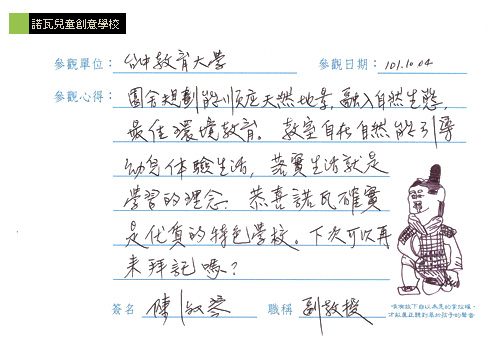 諾瓦兒童創意學校
參觀單位: 台中教育大學 參觀日期: 101.10.04
參觀心得: 園舍規劃能順應天然地景,融入自然生態,
最佳環境教育。教室自在自然能引導
幼兒体驗生活,落實生活就是
學習的理念 恭喜諾瓦確實
是优質的特色學校。下次可以再
來拜訪嗎?
簽名 陳淑 職稱 副教授
唯有放下自以為是的掌控權,
才能真正聽到最前孩子的聲音